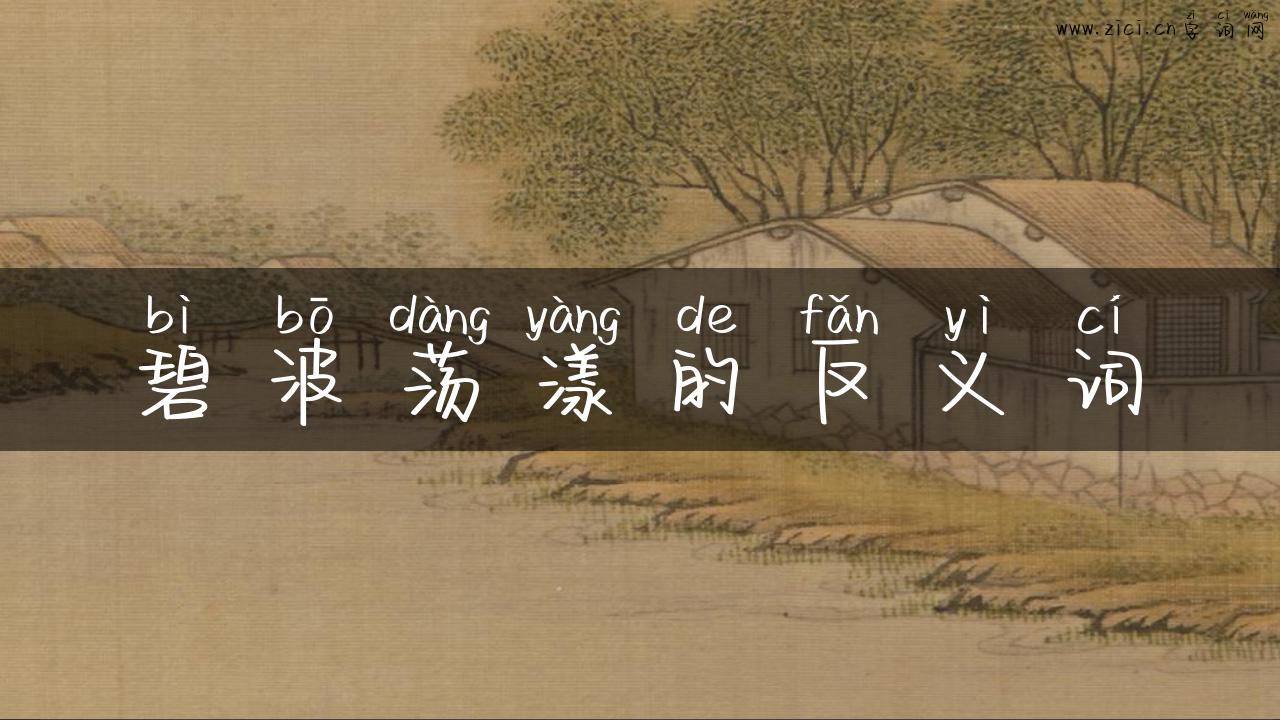 www.zici.cn字词网
zì cí wǎng
bì bō dàng yàng de fǎn yì cí
碧波荡漾的反义词